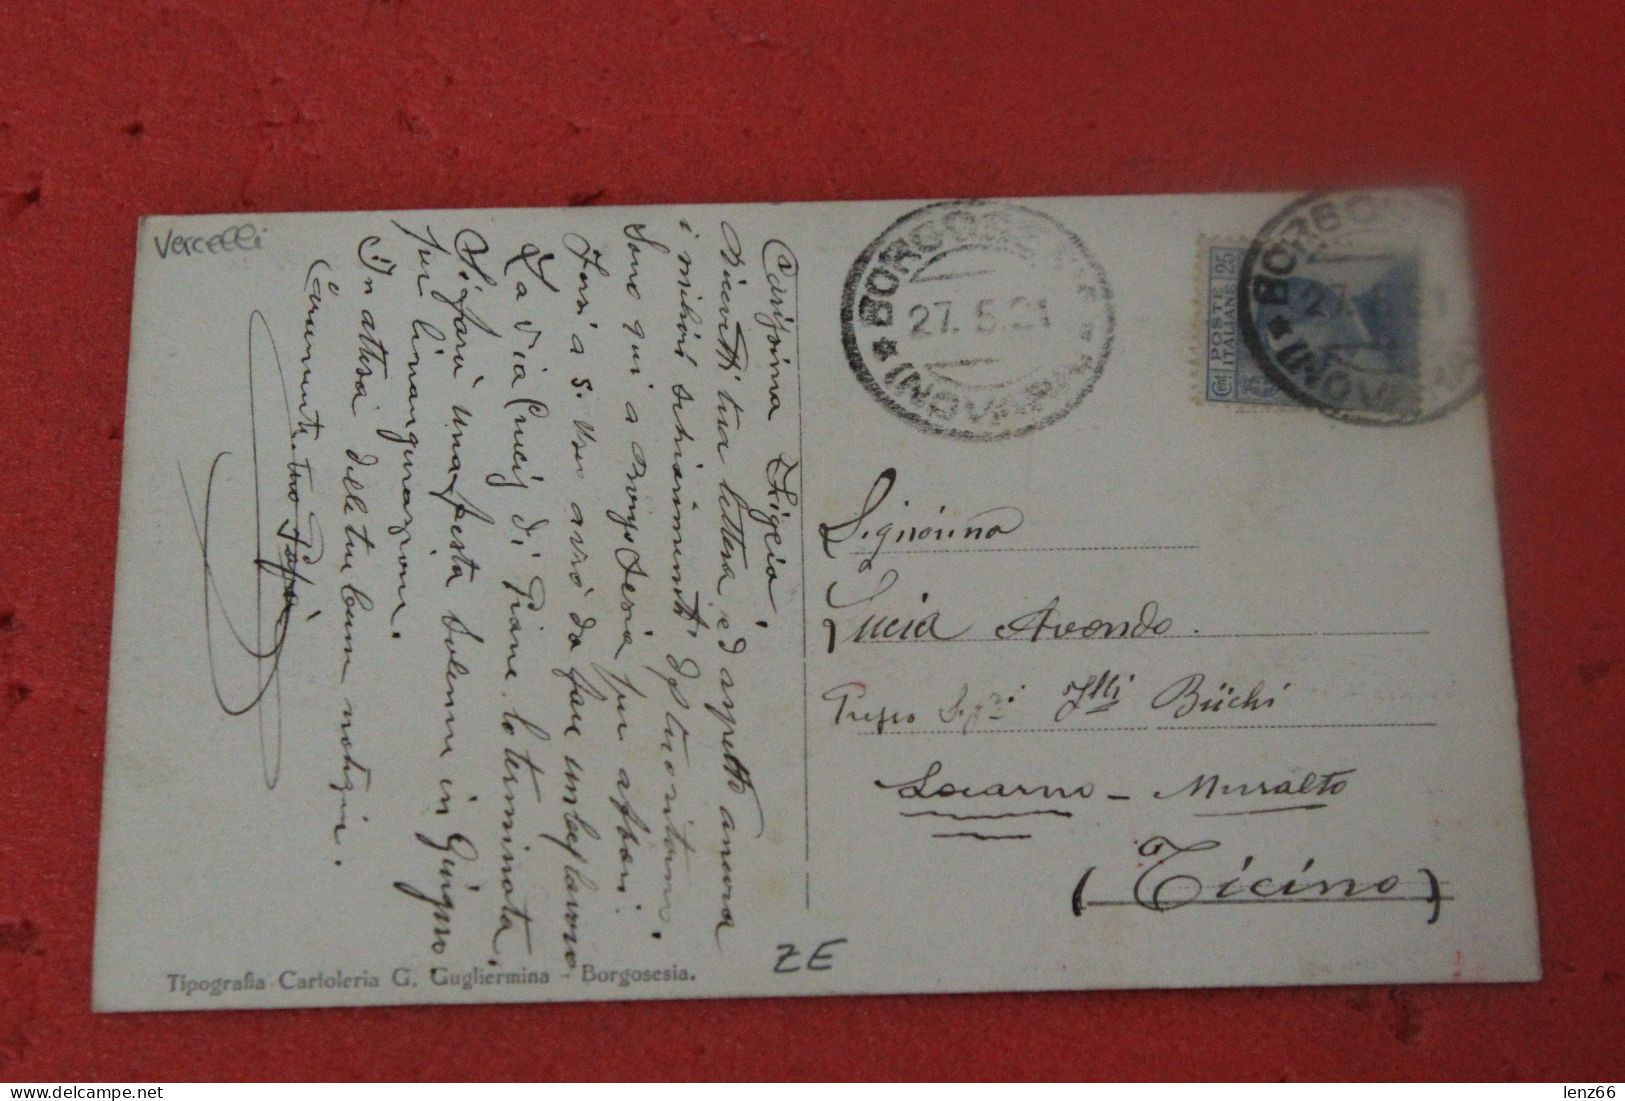 Vercelli
Carissima Ligeia,
Ricevetti tua lettera ed aspetto ancora
i migliori schiarimenti del tuo ritorno.
Sono qui a Borgosesia per affari.
Forsi a S. avrò da fare un bel lavoro
La via Crucis di Piane, lo terminata.
Si farà una festa solenne in Giugno
per l'inangurazione.
In attesa delle tue buone notizie.
tuo Papà
BORGOSESIA
27.5.21
POSTE ITALIANE
Cent 25
BORGO
27.5.21
Signorina
Lucia Avondo.
Presso Sigri Flli Büchi
Locarno - Muralto
(Ticino)
ZE
Tipografia Cartoleria G. Gugliermina - Borgosesia.
lenz66